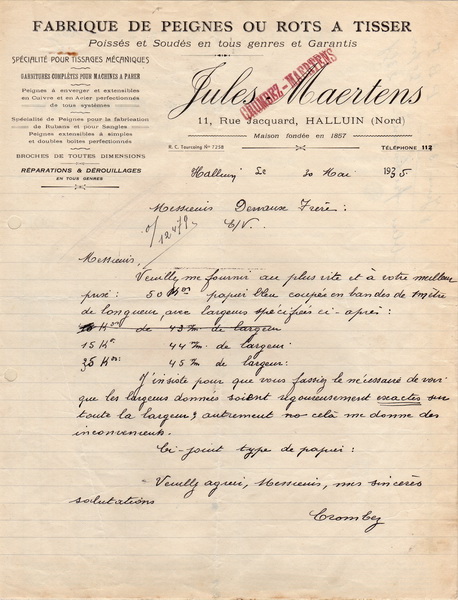 FABRIQUE DE PEIGNES OU ROTS A TISSER
Poissés et Soudés en tous genres et Garantis
SPÉCIALITÉ POUR TISSAGES MÉCANIQUES
GARNITURES COMPLÈTES POUR MACHINES A PARER
Peignes à enverger et extensibles
en Cuivre et en Acier perfectionnés
de tous systèmes
Spécialité de Peignes pour la fabrication
de Rubans et pour Sangles.
Peignes extensibles à simples et
doubles boîtes perfectionnés
BROCHES DE TOUTES DIMENSIONS
RÉPARATIONS & DÉROUILLAGES
EN TOUS GENRES
Jules Maertens
CROMBEZ-MAERTENS
11, Rue Jacquard, HALLUIN (Nord)
Maison fondée en 1857
R. C. Tourcoing Nº 7258
TÉLÉPHONE 112
Halluin, Le 20 Mai 1935
Messieurs Dervaux Frère :
E/V.
12479
Messieurs,
Veuillez me fournir au plus vite et à votre meilleur
prix : 50 Kos papier bleu coupée en bandes de 1 mètre
de longueur, avec largeurs spécifiés ci-après :
de 43 m. de largeur
15 K 44 m. de largeur
35 Kos 45 m. de largeur :
J'insiste pour que vous fassiez le nécessaire de voir
que les largeurs donnés soient rigoureusement exactes sur
toute la largeur, autrement celà me donne des
inconvenients.
Ci-joint type de papier :
Veuillez agréer, Messieurs, mes sincères
salutations
Crombez